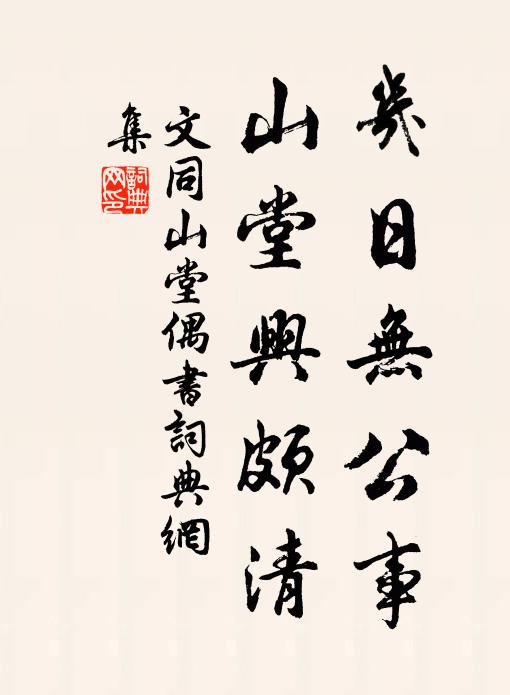 幾日無公事
山堂興頗清
文同山堂偶書詞典網
集
詞典網印